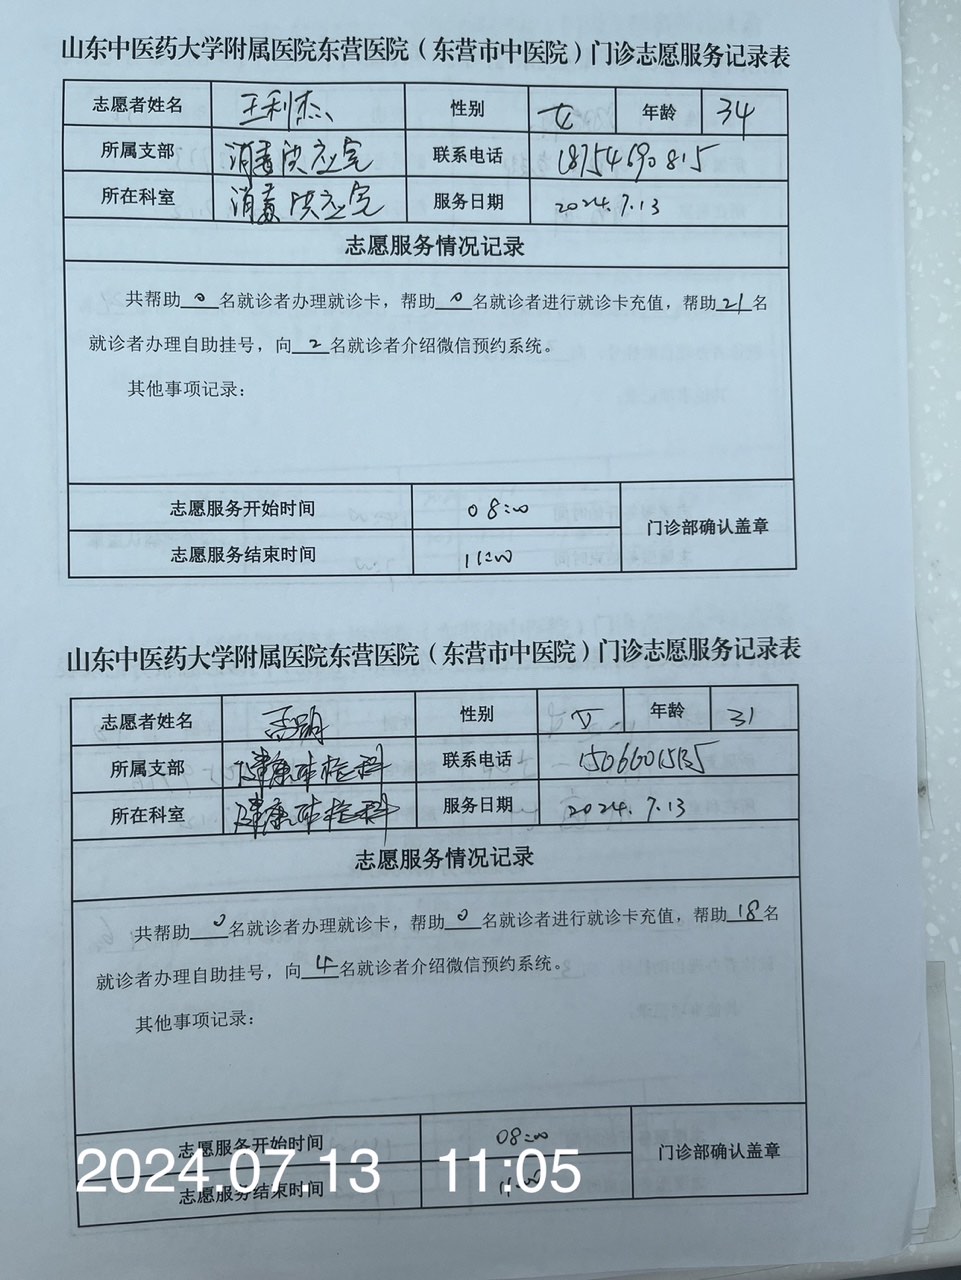 山东中医药大学附属医院东营医院（东营市中医院）门诊志愿服务记录表
志愿者姓名 王利杰 性别 女 年龄 34
所属支部 消毒供应室 联系电话 18754690815
所在科室 消毒供应室 服务日期 2024.7.13
志愿服务情况记录
共帮助 0 名就诊者办理就诊卡，帮助 0 名就诊者进行就诊卡充值，帮助 21 名
就诊者办理自助挂号，向 2 名就诊者介绍微信预约系统。
其他事项记录：
志愿服务开始时间 08:00
门诊部确认盖章
志愿服务结束时间 11:00
山东中医药大学附属医院东营医院（东营市中医院）门诊志愿服务记录表
志愿者姓名 性别 女 年龄 31
所属支部 健康体检科 联系电话
所在科室 健康体检科 服务日期 2024.7.13
志愿服务情况记录
共帮助 0 名就诊者办理就诊卡，帮助 0 名就诊者进行就诊卡充值，帮助 18 名
就诊者办理自助挂号，向 4 名就诊者介绍微信预约系统。
其他事项记录：
志愿服务开始时间 08:00
门诊部确认盖章
志愿服务结束时间 11:00
2024.07.13 11:05